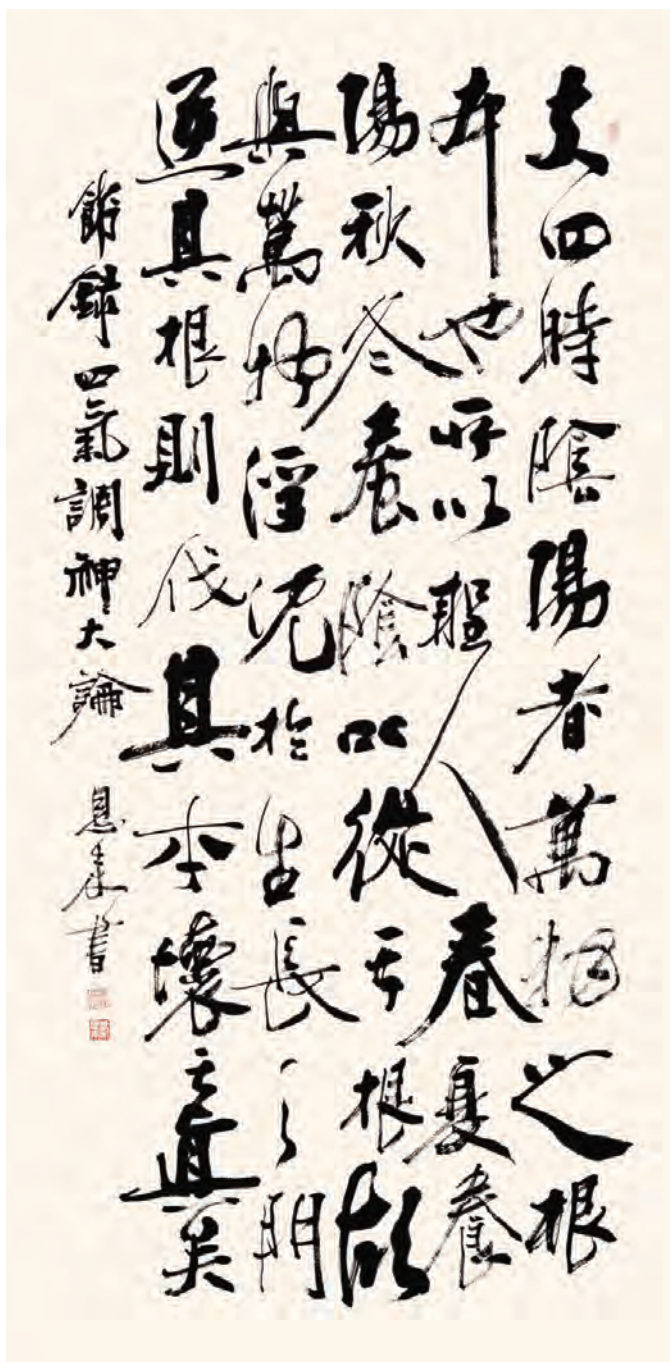 夫四時陰陽者萬物之根
本也所以聖人春夏養
陽秋冬養陰以從其根故
與萬物浮沉於生長之門
逆其根則伐其本壞其真矣
節錄四氣調神大論 書